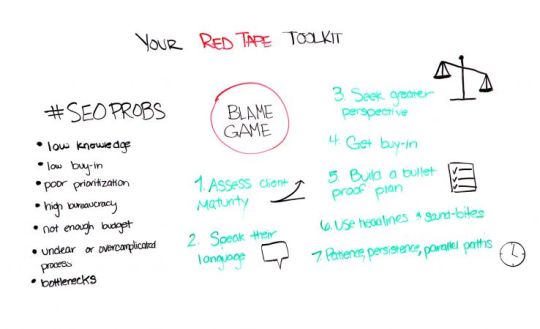 YOUR RED TAPE TOOLKIT
#SEOPROBS
• low knowledge
• low buy-in
• poor prioritization
• high bureaucracy
• not enough budget
• unclear or overcomplicated
process
• bottlenecks
BLAME
GAME
1. Assess client
Maturity
2. Speak their
language
3. Seek greater
perspective
4. Get buy-in
5. Build a bullet
proof plan
6. Use headlines & sound-bites
7. Patience, persistence, parallel paths